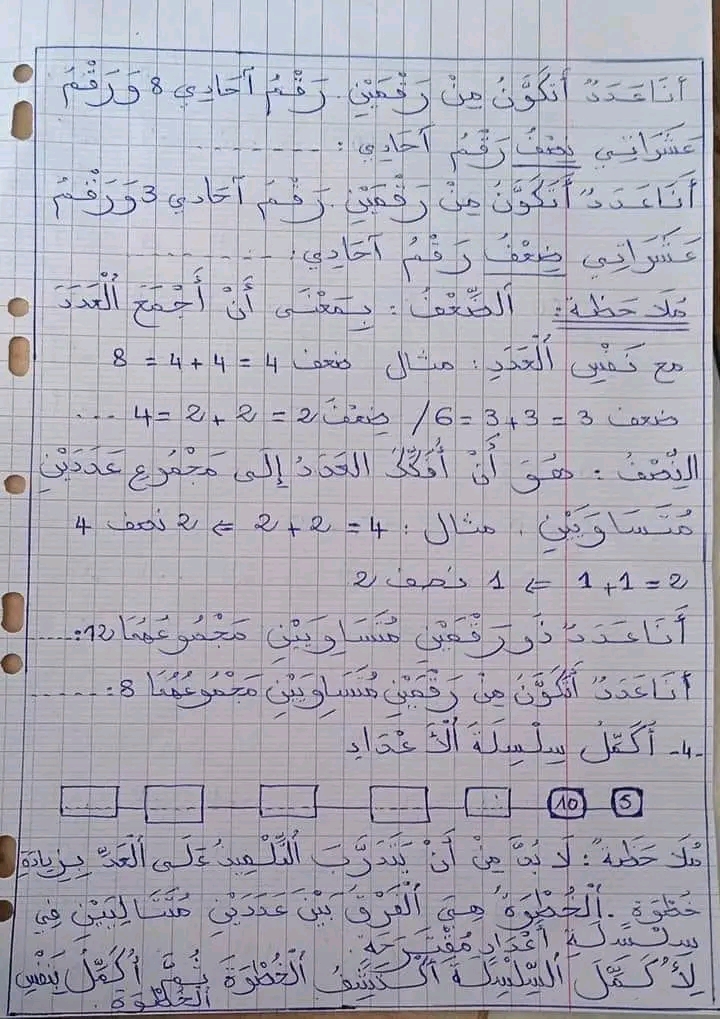 أَنَا عَدَدٌ أَتَكَوَّنُ مِنْ رَقْمَيْنِ. رَقْمُ آحَادِي 8 وَرَقْمُ
عَشَرَاتِي نِصْفُ رَقْمُ آحَادِي : ........
أَنَا عَدَدٌ أَتَكَوَّنُ مِنْ رَقْمَيْنِ. رَقْمُ آحَادي 3 وَرَقْمُ
عَشَرَاتِي ضِعْفُ رَقْمُ آحَادِي: ........
مُلَاحَظة: اَلضِّعْفُ : بِمَعْنَى أَنْ أَجْمَعَ اُلْعَدَدَ
مع نَفْسِ اُلْعَدَدِ : مثال ضعف 4 = 4 + 4 = 8
ضعف 3 = 3 + 3 = 6 / ضِعْفُ 2 = 2 + 2 = 4 ...
النِّصْفُ : هُوَ أَنْ أُفَكِّكَ العَدَدَ إِلَى مَجْمُوعِ عَدَدَيْنِ
مُتَسَاوِيَيْنِ . مثال : 4 = 2 + 2 ⇐ 2 نصف 4
2 = 1 + 1 ⇐ 1 نصف 2
أَنَا عَدَدٌ ذُو رَقْمَيْنِ مُتَسَاوِيَيْنِ مَجْمُوعُهُمَا 12: ......
أَنَا عَدَدٌ أَتَكَوَّنُ مِنْ رَقْمَيْنِ مُتَسَاوِيَيْنِ مَجْمُوعُهُمَا 8: ......
-4- أُكَمِّلُ سِلْسِلَةَ اُلْأَعْدَادِ
5 10 ..... ..... ..... ..... .....
مُلَاحَظَةٌ : لَا بُدَّ مِنْ أَنْ يَتَدَرَّبَ اُلتِّلْمِيذُ عَلَى اَلْعَدِّ بِزِيَادَةِ
خُطْوَةِ . اَلْخُطْوَةُ هِيَ اَلْفَرْقُ بَيْنَ عَدَدَيْنِ مُتَتَالِيَيْنِ فِي
سِلْسِلَةِ أَعْدَادٍ مُقْتَرَحَةٍ.
لِأُكَمِّلَ اَلسِّلْسِلَةَ أَكْتَشِفُ اَلْخُطْوَةَ ثُمَّ أُكَمِّلُ بِنَفْسِ
اَلْخُطْوَةِ.